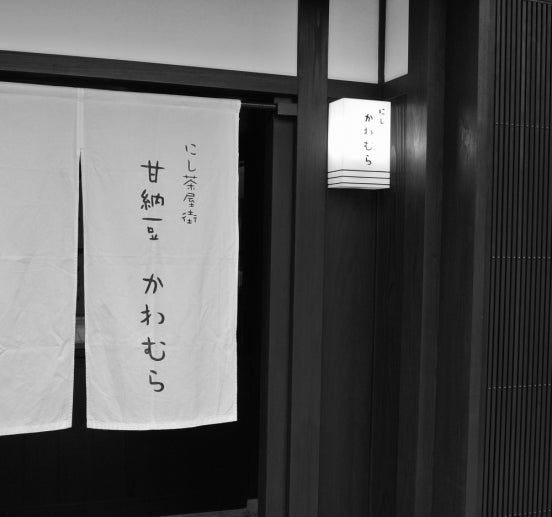 にし茶屋街
甘納豆 かわむら
にし
かわむら